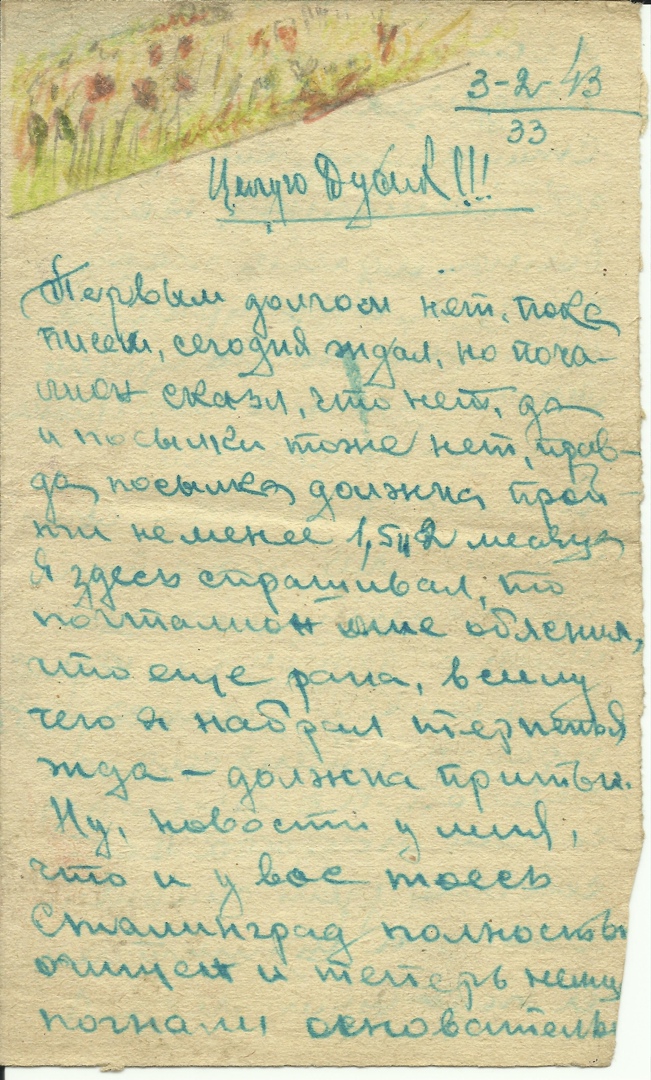 3-2-43
33
Целую Дусик!!!
Первым долгом нет, пока
писем, сегодня ждал, но почта-
лион сказл, что нет, да
и посылки тоже нет, прав-
да посылка должна прой-
ти не менее 1,5-2 месяца
Я здесь спрашивал, то
почталион мне обяснил,
что еще рана, в силу
чего я набрал терпенья
жда - должна притьти.
Ну, новости у миня,
что и у вас тоесь
Сталинград полность
очищен и теперь немц
погнали основатель